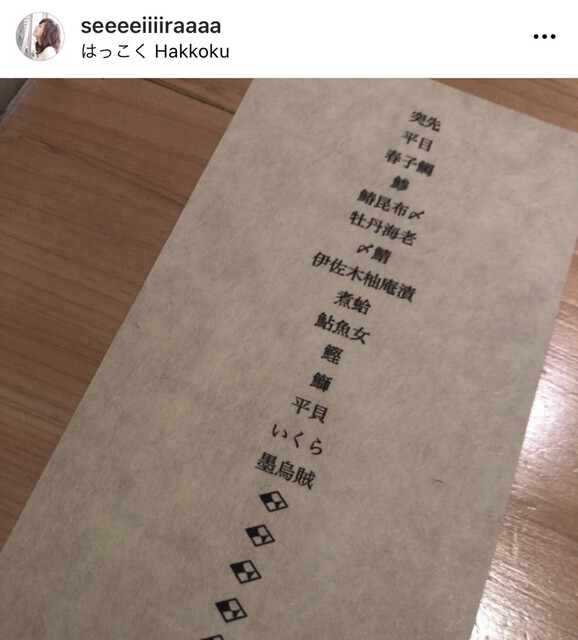 seeeeiiiiraaaa
はっこく Hakkoku
突先
平目
春子鯛
鯵
鰆昆布〆
牡丹海老
〆鯖
伊佐木柚庵漬
煮蛤
鮎魚女
鰹
鰤
平貝
いくら
墨烏賊